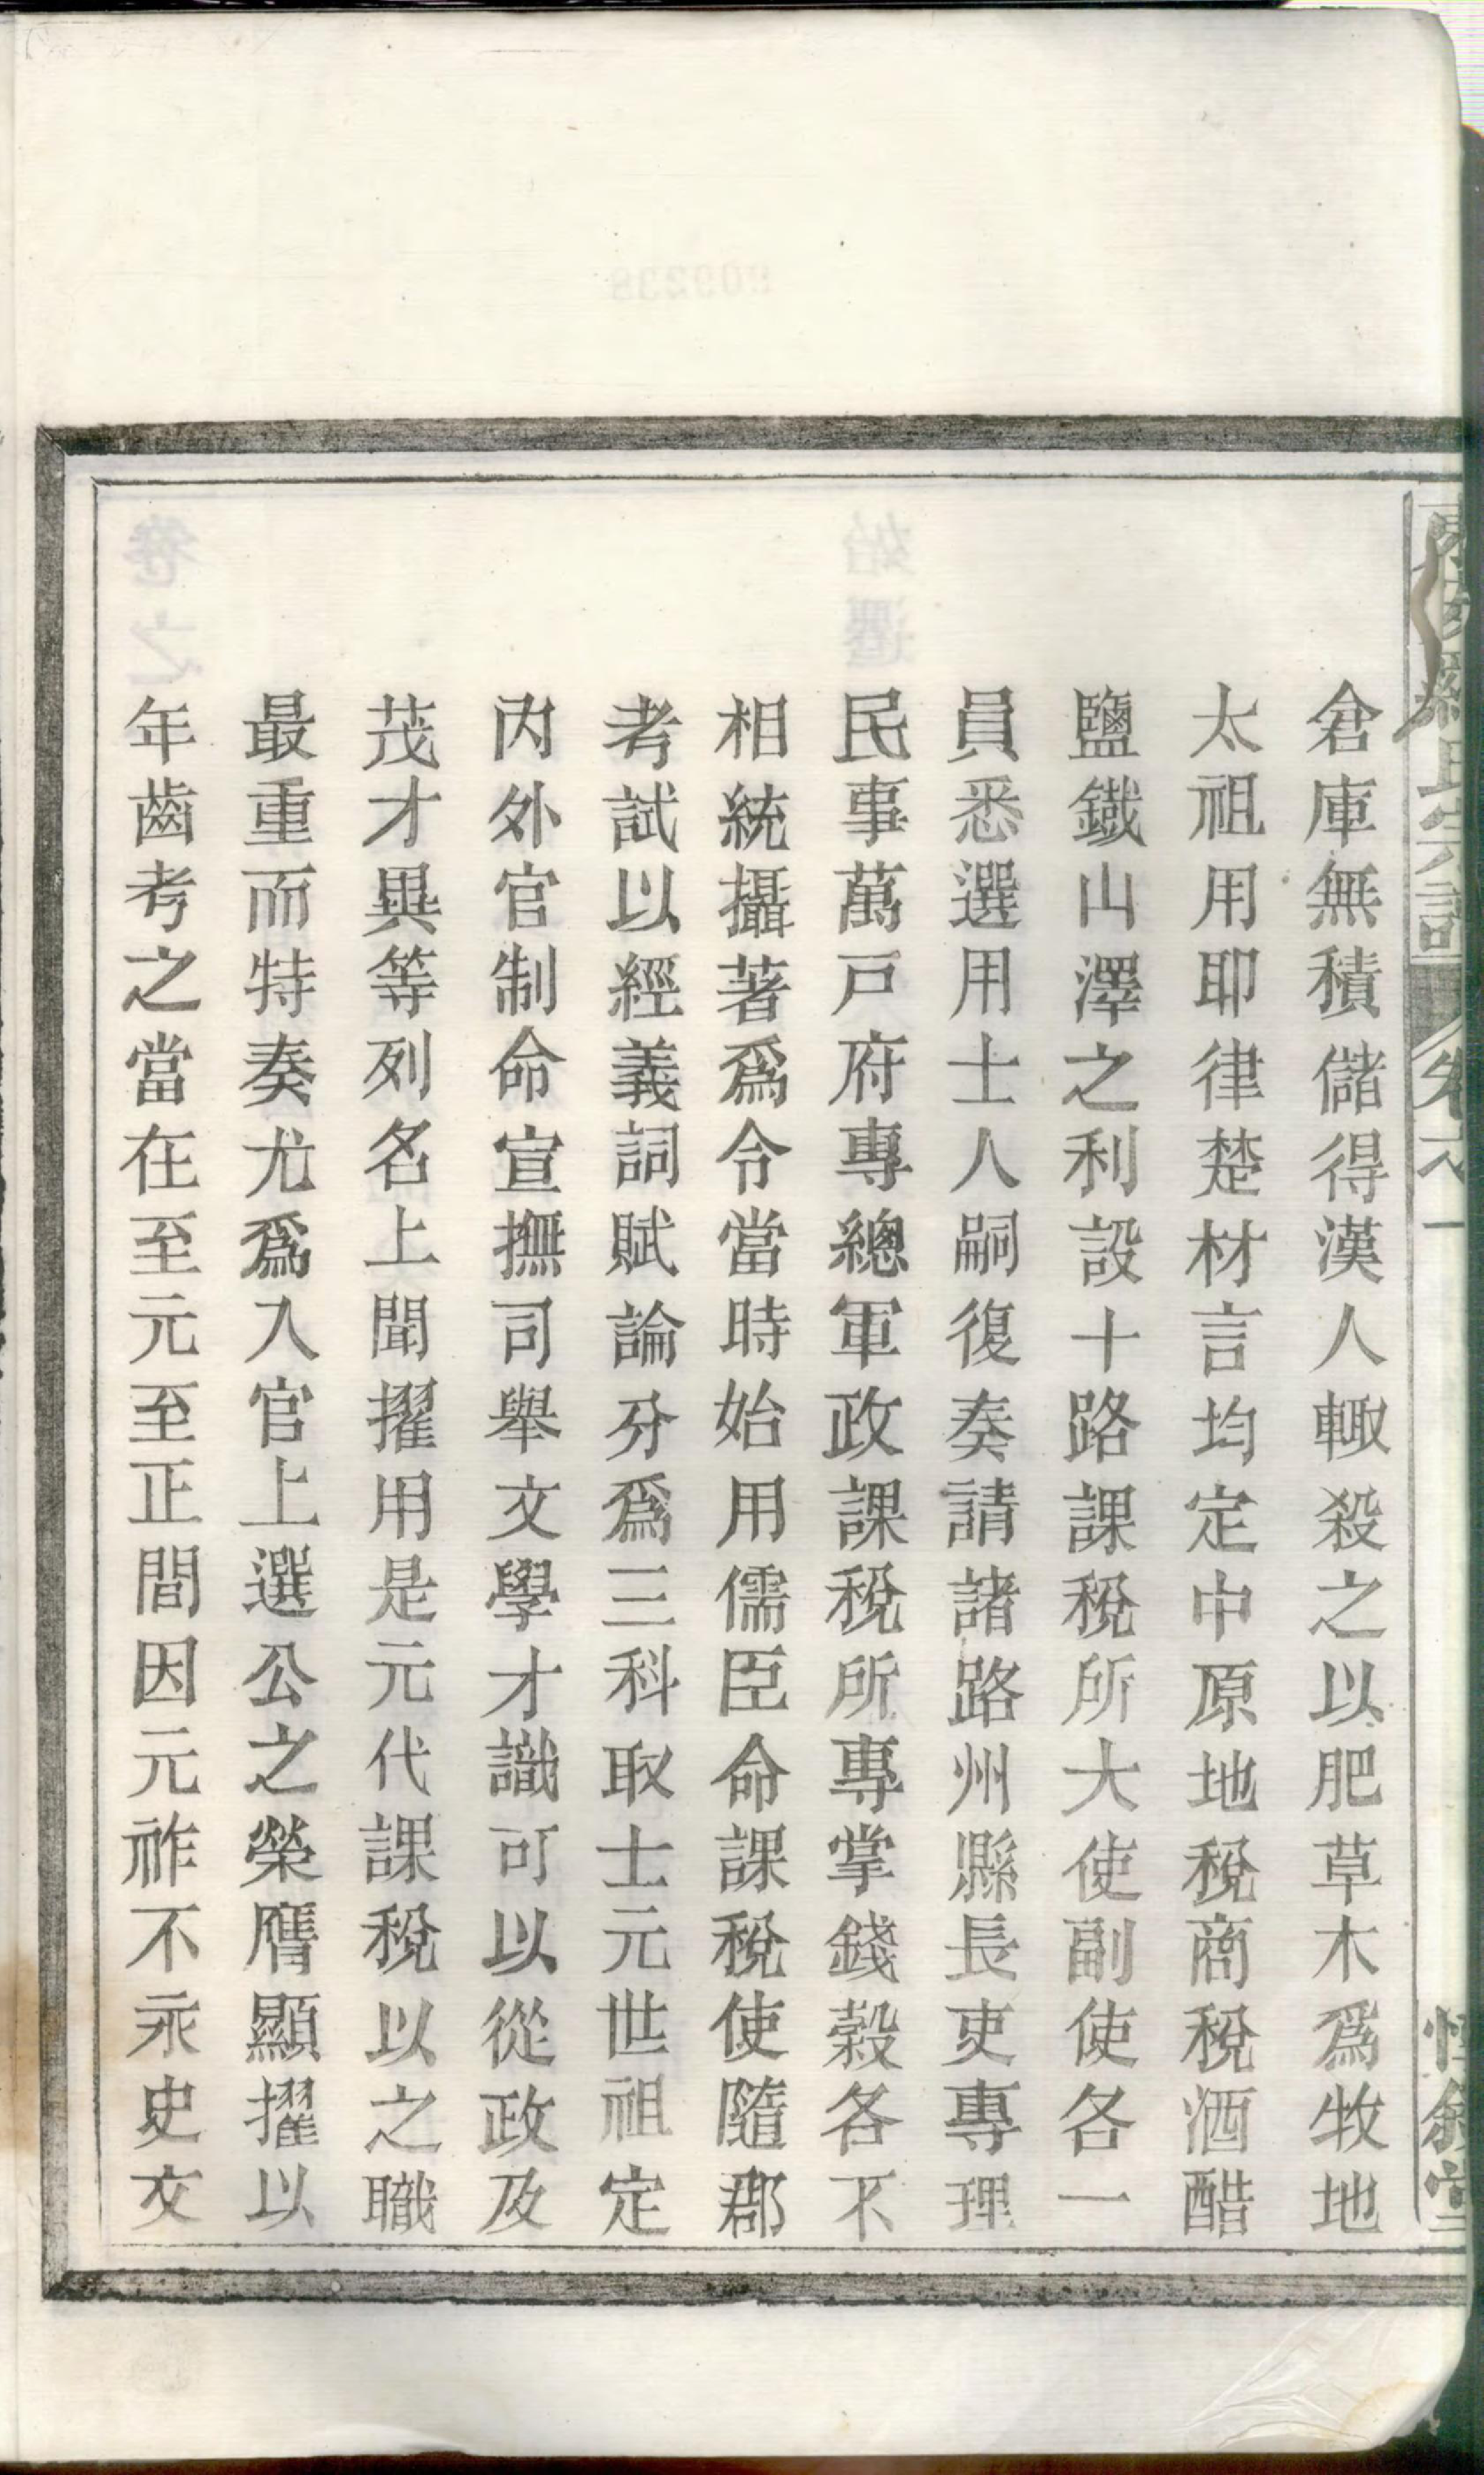 倉庫無積儲得漢人輙殺之以肥草木爲牧地
太祖用耶律楚材言均定中原地稅商稅酒醋
鹽鐵山澤之利設十路課稅所大使副使各一
員悉選用士人嗣復奏請諸路州縣長吏專理
民事萬戸府專總軍政課稅所專掌錢穀各不
相統攝著爲令當時始用儒臣命課稅使隨郡
考試以經義詞賦論分爲三科取士元世祖定
內外官制命宣撫司舉文學才識可以從政及
茂才異等列名上聞擢用是元代課稅以之職
最重而特奏尤爲入官上選公之榮膺顯擢以
年齒考之當在至元至正間因元祚不永史文